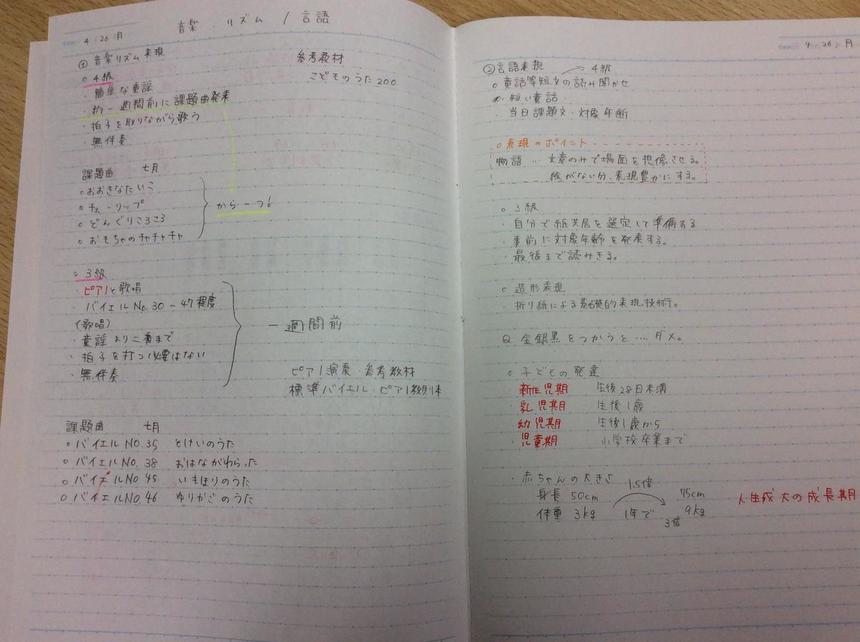 4.26.月
音楽.リズム / 言語
① 音楽リズム表現
○ 4級
・簡単な童謡
・約一週間前に課題曲発表
・拍子を取りながら歌う
・無伴奏
参考教材
こどものうた200
課題曲 七月
○ おおきなたいこ
○ チューリップ
○ どんぐりころころ
○ おもちゃのチャチャチャ
から一つ!
○ 3級
・ピアノと歌唱
・バイエルNo.30~47程度
(歌唱)
・童謡より二番まで
・拍子を打つ必要はない
・無伴奏
一週間前
ピアノ演奏・参考教材
標準バイエル・ピアノ教則本
課題曲 七月
○ バイエルNO.35 とけいのうた
○ バイエルNO.38 おはながわらった
○ バイエルNO.45 いもほりのうた
○ バイエルNO.46 ゆりかごのうた
4.26.月
②言語表現 4級
○ 童話等短文の読み聞かせ
・短い童話
・当日課題文・対象年齢
○表現のポイント
物語‥ 文章のみで場面を想像させる。
絵がない分、表現豊かにする。
○ 3級
・自分で紙芝居を選定して準備する
・事前に対象年齢を発表する。
・最後まで読みきる。
○ 造形表現
・折り紙による基礎的表現技術。
Q. 金銀黒をつかうと…ダメ。
○ 子どもの発達
新生児期 生後28日未満
乳児期 生後1歳
幼児期 生後1歳から
・児童期 小学校卒業まで
・赤ちゃんの大きさ 1.5倍
身長 50cm 75cm
体重 3kg 1年で 9kg
3倍
人生最大の成長期